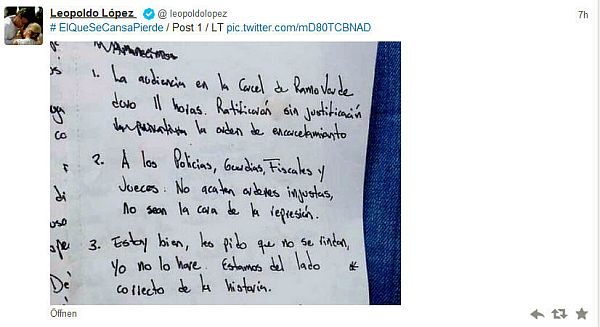 Leopoldo López, @ leopoldolopez 7h
# ElQueSeCansaPierde / Post 1 / LT pic.twitter.com/mD80TCBNAD
1. La audiencia en la Carcel de Ramo Verde
duro 11 horas. Ratificarón sin justificación
la orden de encarcelamiento
2. A los Policias, Guardias, Fiscales y
Jueces. No acaten ordenes injustas,
no sean la cara de la represión.
3. Estoy bien, les pido que no se rindan,
Yo no lo hare. Estamos del lado
correcto de la historia.
Öffnen